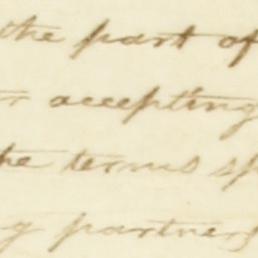 the part of
accepting
the terms sp
partners